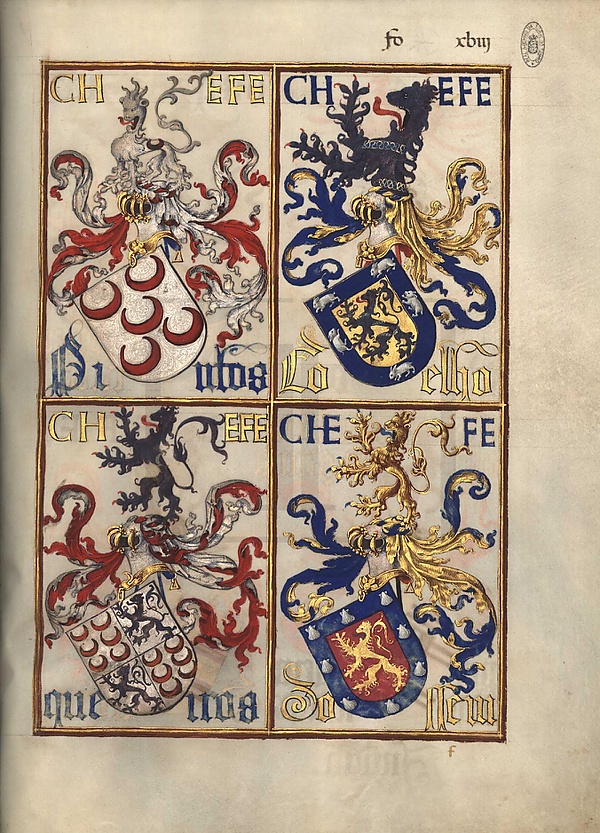 fo xbiij
CH EFE
CH EFE
Pi ntos
Co elho
CH EFE
CHE FE
que iros
So
f